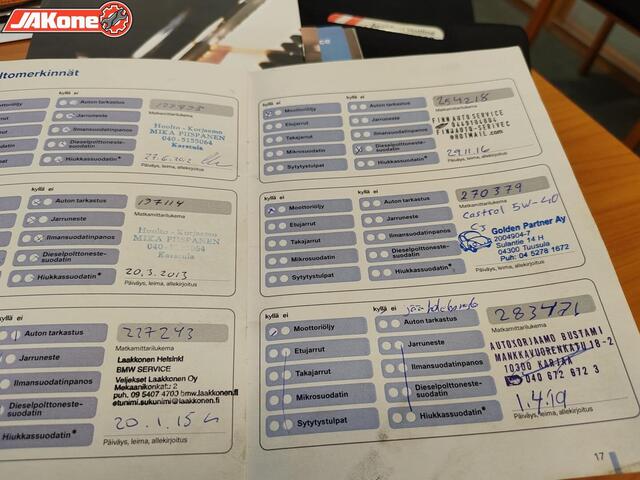 JAKone
ltomerkinnät
kyllä ei
Moottoriöljy
Etujarrut
Takajarrut
Mikrosuodatin
Sytytystulpat
kyllä ei
Auton tarkastus
Jarruneste
Ilmansuodatinpanos
Dieselpolttoneste-
suodatin
Hiukkassuodatin*
Matkamittarilukema
Huolto - Korjaamo
MIKA PIISPANEN
040 - 5155064
Karstula
Päiväys, leima, allekirjoitus
kyllä ei
Auton tarkastus
Jarruneste
Ilmansuodatinpanos
Dieselpolttoneste-
suodatin
Hiukkassuodatin*
197114
Matkamittarilukema
Huolto - Korjaamo
MIKA PIISPANEN
Karstula
20.3.2013
Päiväys, leima, allekirjoitus
kyllä ei
Auton tarkastus
Jarruneste
Ilmansuodatinpanos
Dieselpolttoneste-
suodatin
Hiukkassuodatin*
227243
Matkamittarilukema
Laakkonen Helsinki
BMW SERVICE
Veljekset Laakkonen Oy
Mekaanikonkatu 2
puh. 09 5407 4700 bmw.laakkonen.fi
etunimi.sukunimi@laakkonen.fi
20.1.15
Päiväys, leima, allekirjoitus
kyllä ei
Auton tarkastus
Jarruneste
Ilmansuodatinpanos
Dieselpolttoneste-
suodatin
Hiukkassuodatin*
254218
Matkamittarilukema
29.11.16
Päiväys, leima, allekirjoitus
kyllä ei
Moottoriöljy
Etujarrut
Takajarrut
Mikrosuodatin
Sytytystulpat
kyllä ei
Auton tarkastus
Jarruneste
Ilmansuodatinpanos
Dieselpolttoneste-
suodatin
Hiukkassuodatin*
270379
Matkamittarilukema
castrol 5W-40
Golden Partner Ay
2004904-7
Sulantie 14 H
04300 Tuusula
Puh: 04 5278 1672
Päiväys, leima, allekirjoitus
kyllä ei
Moottoriöljy
Etujarrut
Takajarrut
Mikrosuodatin
Sytytystulpat
kyllä ei
Auton tarkastus
Jarruneste
Ilmansuodatinpanos
Dieselpolttoneste-
suodatin
Hiukkassuodatin*
283471
Matkamittarilukema
AUTOKORJAAMO BUSTAMI
MANKKAVUORENKATU 18-2
040 672 672 3
1.4.19
Päiväys, leima, allekirjoitus
17